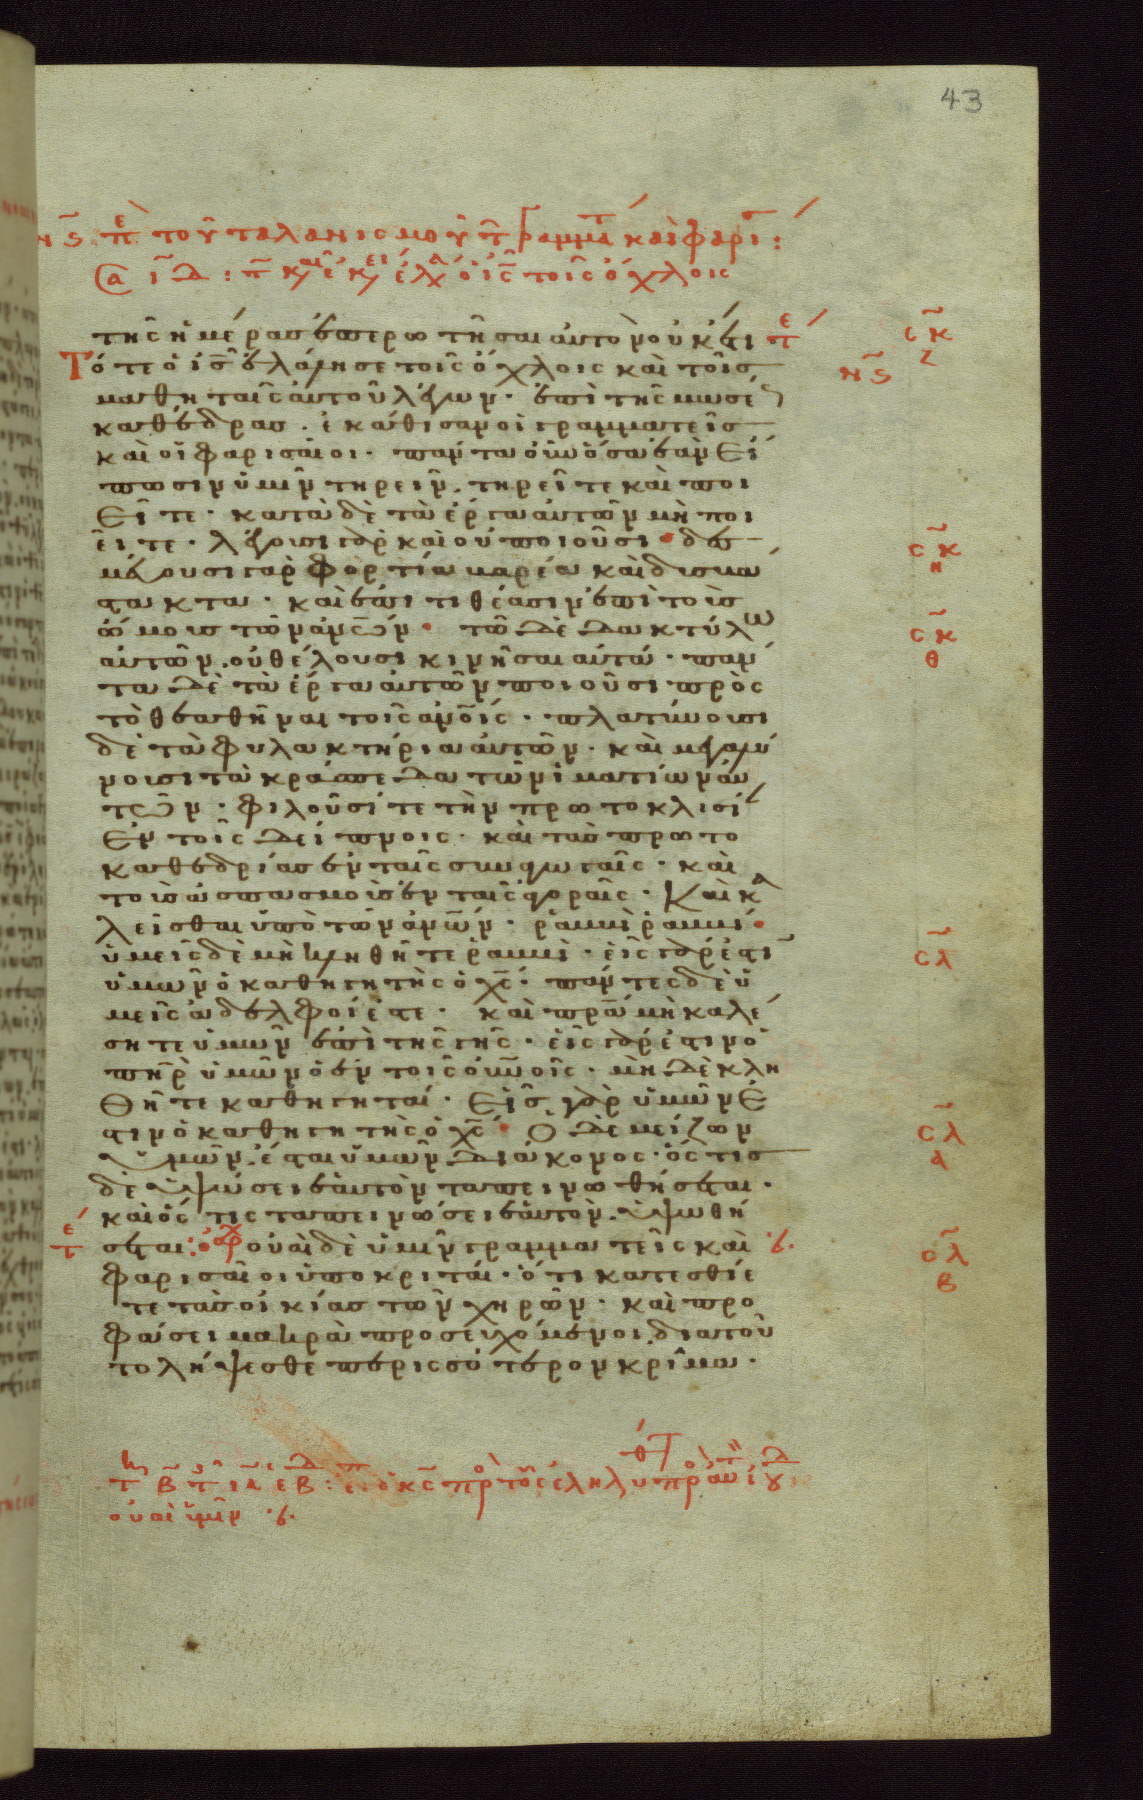 43
νϛ πε τοῦ ταλανισμοῦ τ γραμμτ καὶ φαρι :
τῆς ἡμέρας ἐπερωτῆσαι αὐτὸν οὐκέτι τε
σκζ
Τότε ὁ ις ἐλάλησε τοῖς ὄχλοις καὶ τοῖς
νϛ
μαθηταῖς αὐτοῦ λέγων · ἐπὶ τῆς μωσέ
καθέδρας · ἐκάθισαν οἱ γραμματεῖς
καὶ οἱ φαρισαῖοι · πάντα οὖν ὅσα ἐὰν εἴ
πωσιν ὑμῖν τηρεῖν · τηρεῖτε καὶ ποι
εῖτε · κατὰ δὲ τὰ ἔργα αὐτῶν μὴ ποι
εῖτε · λέγουσι γὰρ καὶ οὐ ποιοῦσι · δε
σκη
σμεύουσι γὰρ φορτία βαρέα καὶ δυσβά
στακτα · καὶ ἐπιτιθέασιν ἐπὶ τοὺς
ὤμους τῶν ανων · τῶ δὲ δακτύλω
σκθ
αὐτῶν · οὐ θέλουσι κινῆσαι αὐτά · πάν
τα δὲ τὰ ἔργα αὐτῶν ποιοῦσι πρὸς
τὸ θεαθῆναι τοῖς ανοις · πλατύνουσι
δὲ τὰ φυλακτήρια αὐτῶν · καὶ μεγαλύ
νουσι τὰ κράσπεδα τῶν ἱματίων αὐ
τῶν · φιλοῦσί τε τὴν πρωτοκλισί
ἐν τοῖς δείπνοις · καὶ τὰς πρωτο
καθεδρίας ἐν ταῖς συναγωγαῖς · καὶ
τοὺς ἀσπασμοὺς ἐν ταῖς ἀγοραῖς · Καὶ κα
λεῖσθαι ὑπὸ τῶν ανων · ῥαββὶ ῥαββί ·
ὑμεῖς δὲ μὴ κληθῆτε ῥαββὶ · εἷς γάρ ἐστιν
σλ
ὑμῶν ὁ καθηγητὴς ὁ χς · πάντες δὲ ὑ
μεῖς ἀδελφοί ἐστε · καὶ πρα μὴ καλέ
σητε ὑμῶν ἐπὶ τῆς γῆς · εἷς γάρ ἐστιν ὁ
πηρ ὑμῶν ὁ ἐν τοῖς ουνοις · μὴ δὲ κλη
θῆτε καθηγηταί · Εἷς γὰρ ὑμῶν ἐ
στιν ὁ καθηγητὴς ὁ χς · Ὁ δὲ μείζων
σλα
ὑμῶν · ἔσται ὑμῶν διάκονος · ὅστις
δὲ ὑψώσει ἑαυτὸν ταπεινωθήσεται ·
καὶ ὅστις ταπεινώσει ἑαυτὸν · ὑψωθή
τε σεται : αρχ οὐαὶ δὲ ὑμῖν γραμματεῖς καὶ
σλβ
φαρισαῖοι ὑποκριταί · ὅτι κατεσθίε
τε τὰς οἰκίας τῶν χηρῶν · καὶ προ
φάσει μακρὰ προσευχόμενοι · διὰ τοῦ
το λήψεσθε περισσότερον κρίμα ·
οὐαὶ ὑμῖν